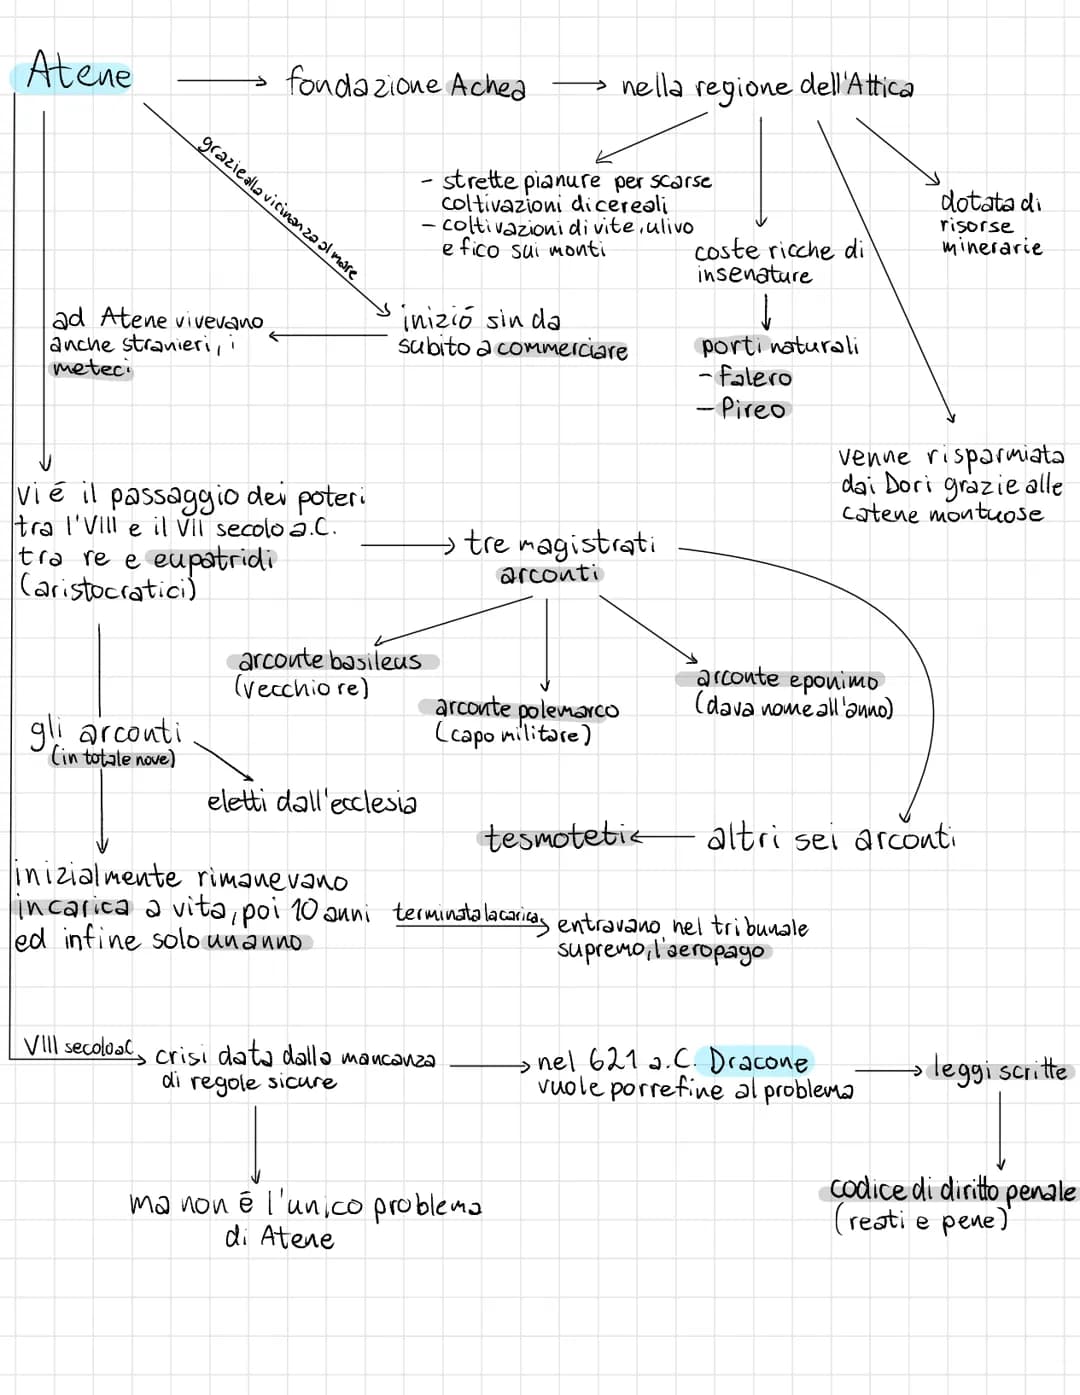 Atene
fondazione Achea
nella regione dell'Attica
grazie alla vicinanza al mare
- strette pianure per scarse
coltivazioni di cereali
- coltivazioni di vite, ulivo
e fico sui monti
coste ricche di
insenature
dotata di
risorse
minerarie
ad Atene vivevano
anche stranieri, i
meteci
inizió sin da
subito a commerciare
porti naturali
- Falero
- Pireo
venne risparmiata
dai Dori grazie alle
catene montuose
vi é il passaggio dei poteri
tra l'VIII e il VII secolo a.C.
tra re e eupatridi
(aristocratici)
tre magistrati
arconti
arconte basileus
(vecchio re)
arconte polemarco
(capo militare)
arconte eponimo
(dava nome all'anno)
gli arconti
(in totale nove)
eletti dall'ecclesia
tesmoteti
altri sei arconti
inizialmente rimanevano
in carica a vita, poi 10 anni
ed infine solo un anno
terminata la carica
entravano nel tribunale
supremo, l'aeropago
VIII secolo a.C.
crisi data dalla mancanza
di regole sicure
nel 621 a.C. Dracone
vuole porre fine al problema
leggi scritte
ma non é l'unico problema
di Atene
codice di diritto penale
(reati e pene)